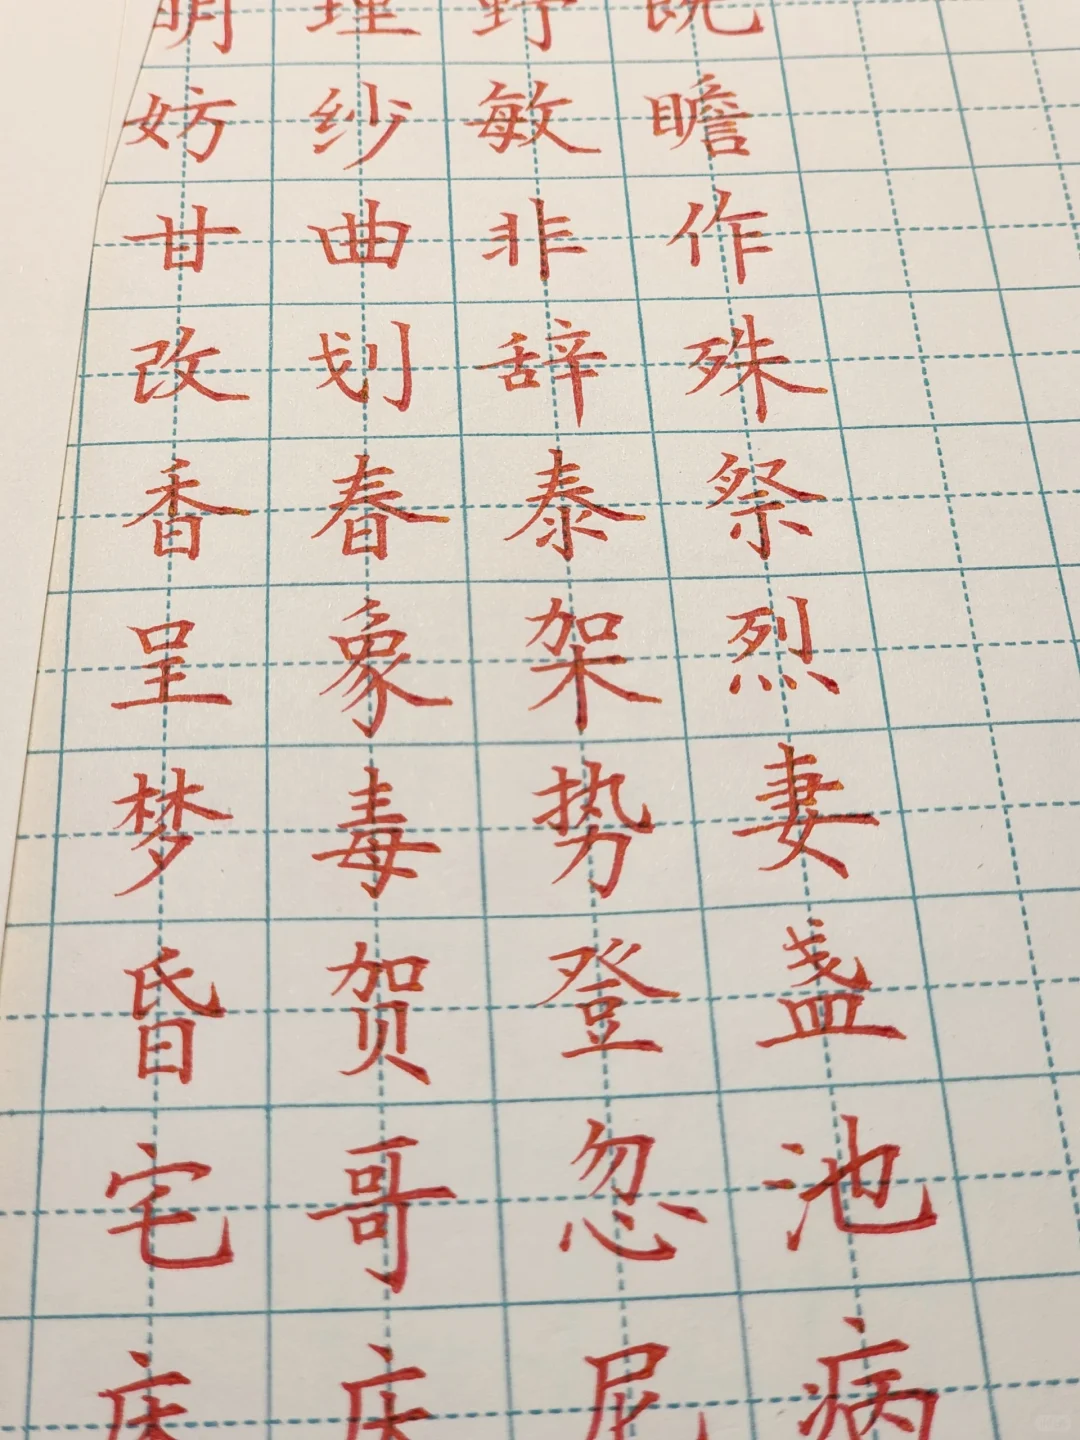 明 理 野 既
妨 纱 敏 瞻
甘 曲 非 作
改 划 辞 殊
香 春 泰 祭
呈 象 架 烈
梦 毒 势 妻
昏 贺 登 盏
宅 哥 忽 池
尼 病